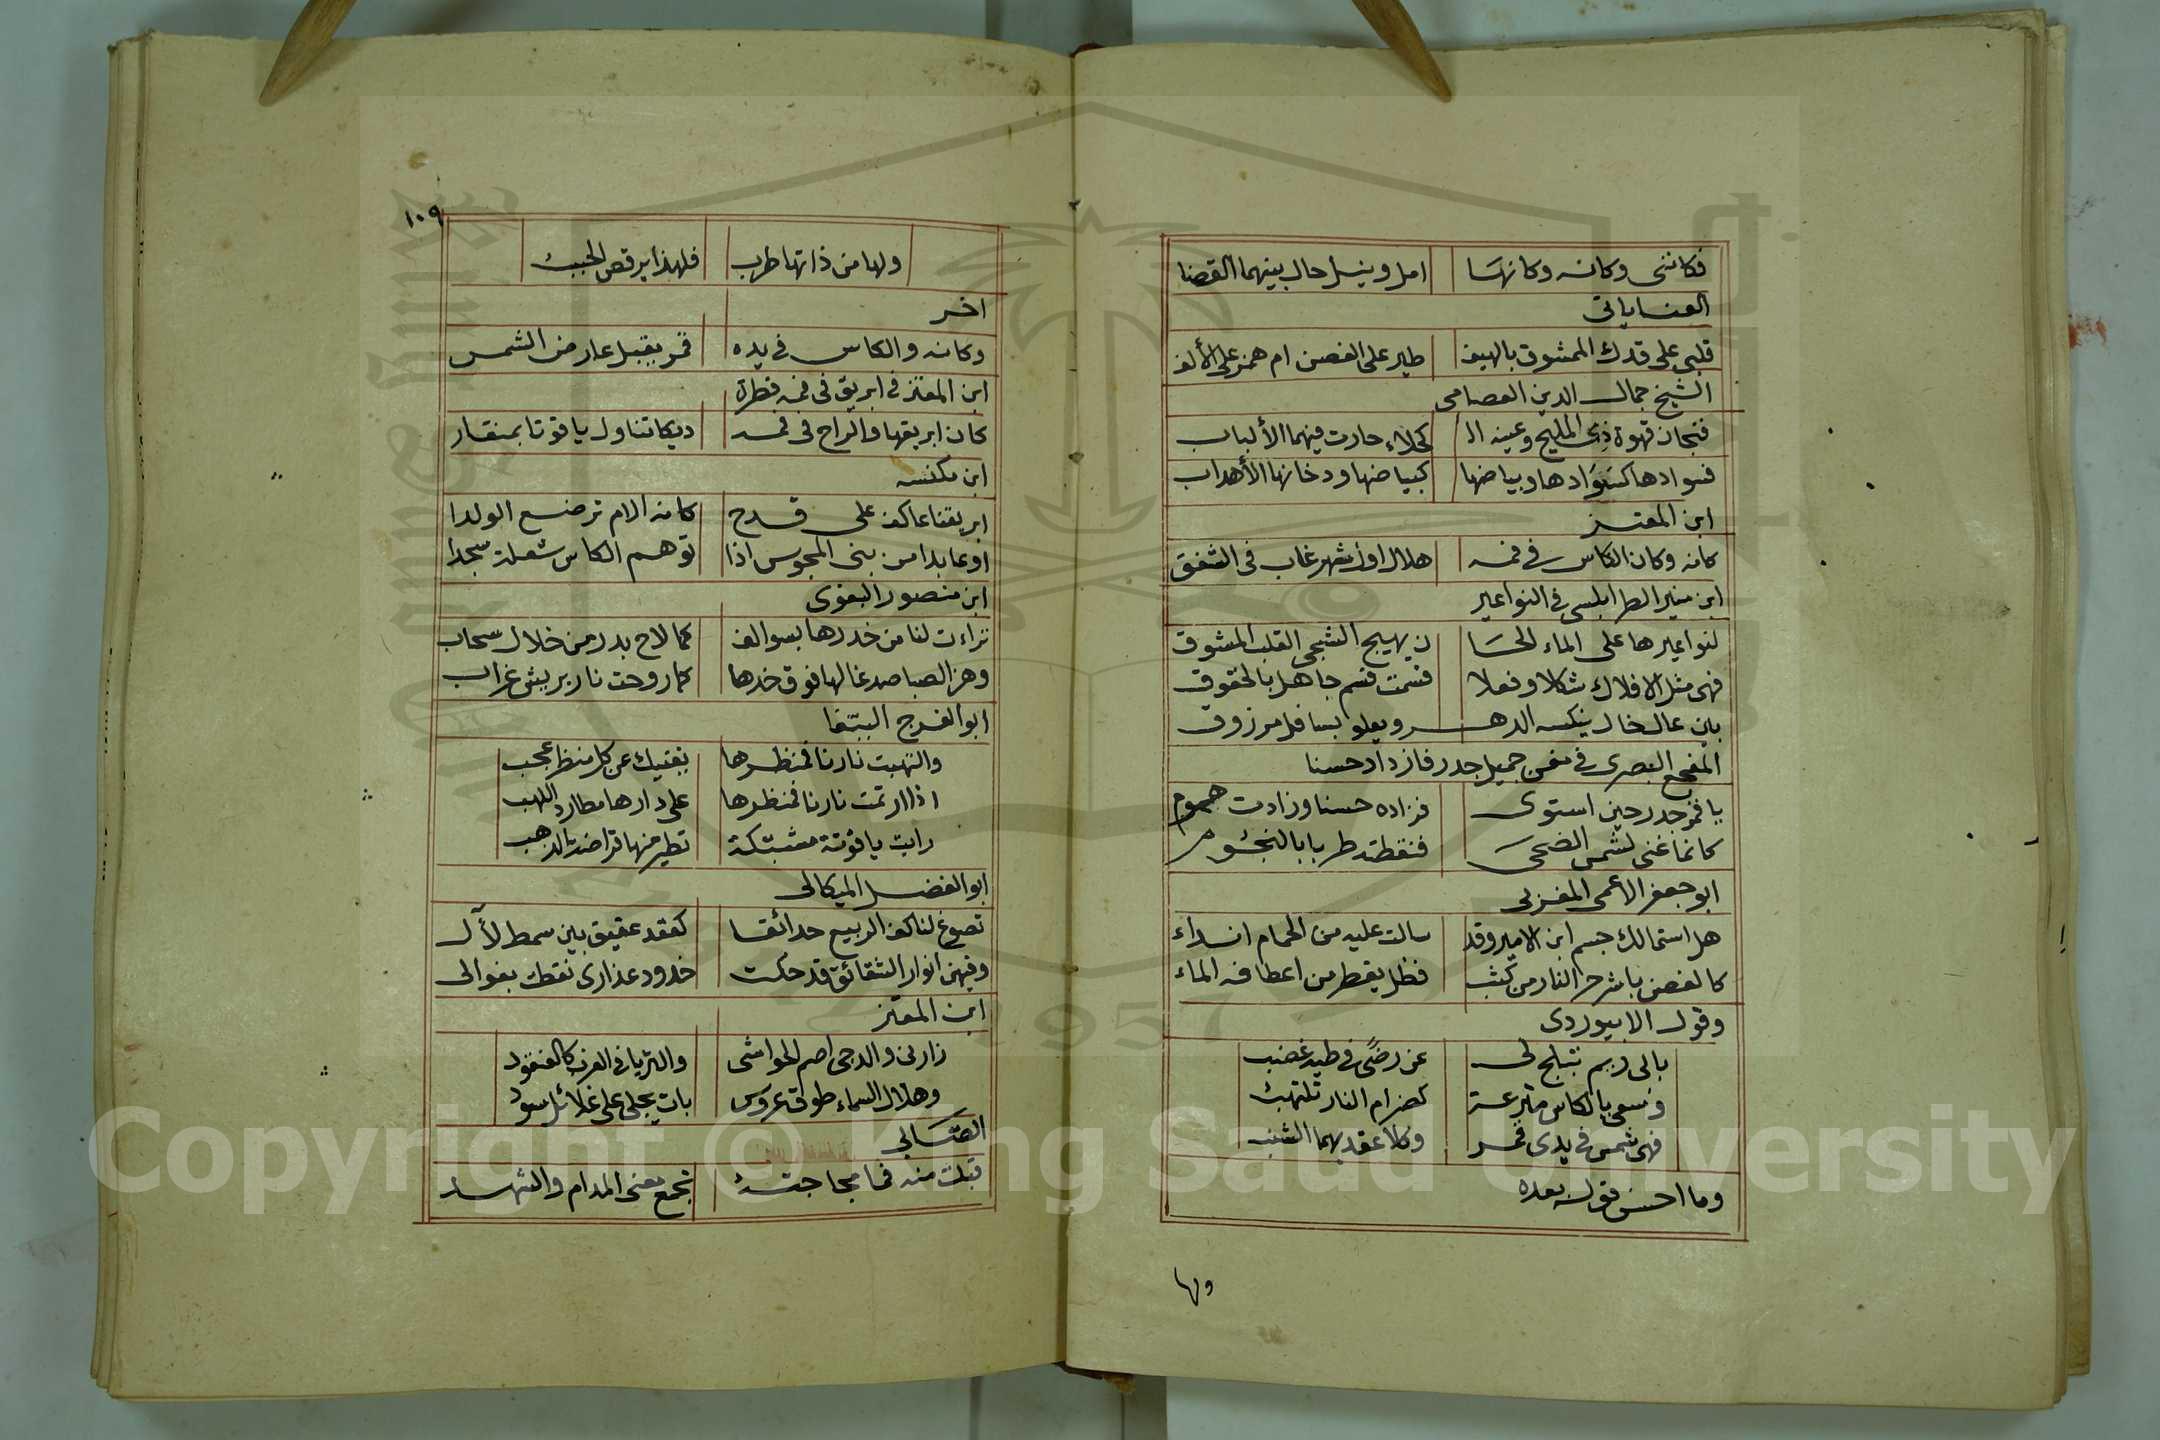 فكانني وكانه وكانها امل ونيل حال بينهما القضا
العناياتي
قلبي على قدك الممشوق بالهيف طير على الغصن ام همز على الألف
الشيخ جمال الدين العصامي
فنجان قهوة ذي المليح وعينه ال كحلاء حارت فيهما الألباب
فسوادها كسوادها وبياضها كبياضها ودخانها الأهداب
ابن المعتز
كانه وكان الكاس في فمه هلال اول شهر غاب في الشفق
ابن منير الطرابلسي في النواعير
لنواعيرها على الماء الحا ن يهيج الشجي القلب المشوق
فهي مثل الافلاك شكلا وفعلا قسمت قسم جاهل بالحقوق
بين عال خال ينكسه الدهر ويعلو بسافل مرزوق
المفجع البصري في مغن جميل جدر فازداد حسنا
يا قمر جدر حين استوى فزاده حسنا وزادت هموم
كانما غنى لشمس الضحى فنقطته طربا بالنجوم
ابو جعفر الأعمى المغربي
هل استمالك جسم ابن الامير وقد سالت عليه من الحمام انداء
كالغصن باشر حر النار من كثب فظل يقطر من اعطافه الماء
وقول الابيوردي
بابي ريم تبلج لي عن رضى في طيه غضب
وسعى بالكاس مترعة كضرام النار تلتهب
فهي شمس في يدي قمر وكلا عقديهما الشنب
وما احسن قوله بعده
ولها
١٠٩
ولها من ذاتها طرب فلهذا يرقص الحبب
اخر
وكانه والكاس في يده قمر يقبل عارض الشمس
ابن المعتز في ابريق في فمه قطرة
كان ابريقها والراح في فمه ديكا تناول ياقوتا بمنقار
ابن مكنسه
ابريقنا عاكف على قدح كانه الام ترضع الولدا
او عابدا من بني المجوس اذا توهم الكاس شعلة سجدا
ابن منصور البغوي
تراءت لنا من خدرها بسوالف كما لاح بدر من خلال سحاب
وهز الصبا صدغا لها فوق خدها كما روحت نار بريش غراب
ابو الفرج الببغا
والتهبت نارنا فمنظرها يغنيك عن كل منظر عجب
اذا ارتمت نارنا فمنظرها على دارها مطارد اللهب
رايت ياقوتة مشبكة تطير منها قراضة الذهب
ابو الفضل الميكالي
تصوغ لنا كف الربيع حدائقا كعقد عقيق بين سمط لآل
وفيهن انوار الشقائق قد حكت خدود عذارى نقطت بغوالي
ابن المعتز
زارني والدجى احم الحواشي والثريا في الغرب كالعنقود
وهلال السماء طوق عروس بات يجلى على غلائل سود
الصابي
قبلت منه فما مجاجته تجمع معنى المدام والشهد
Copyright © King Saud University
1957